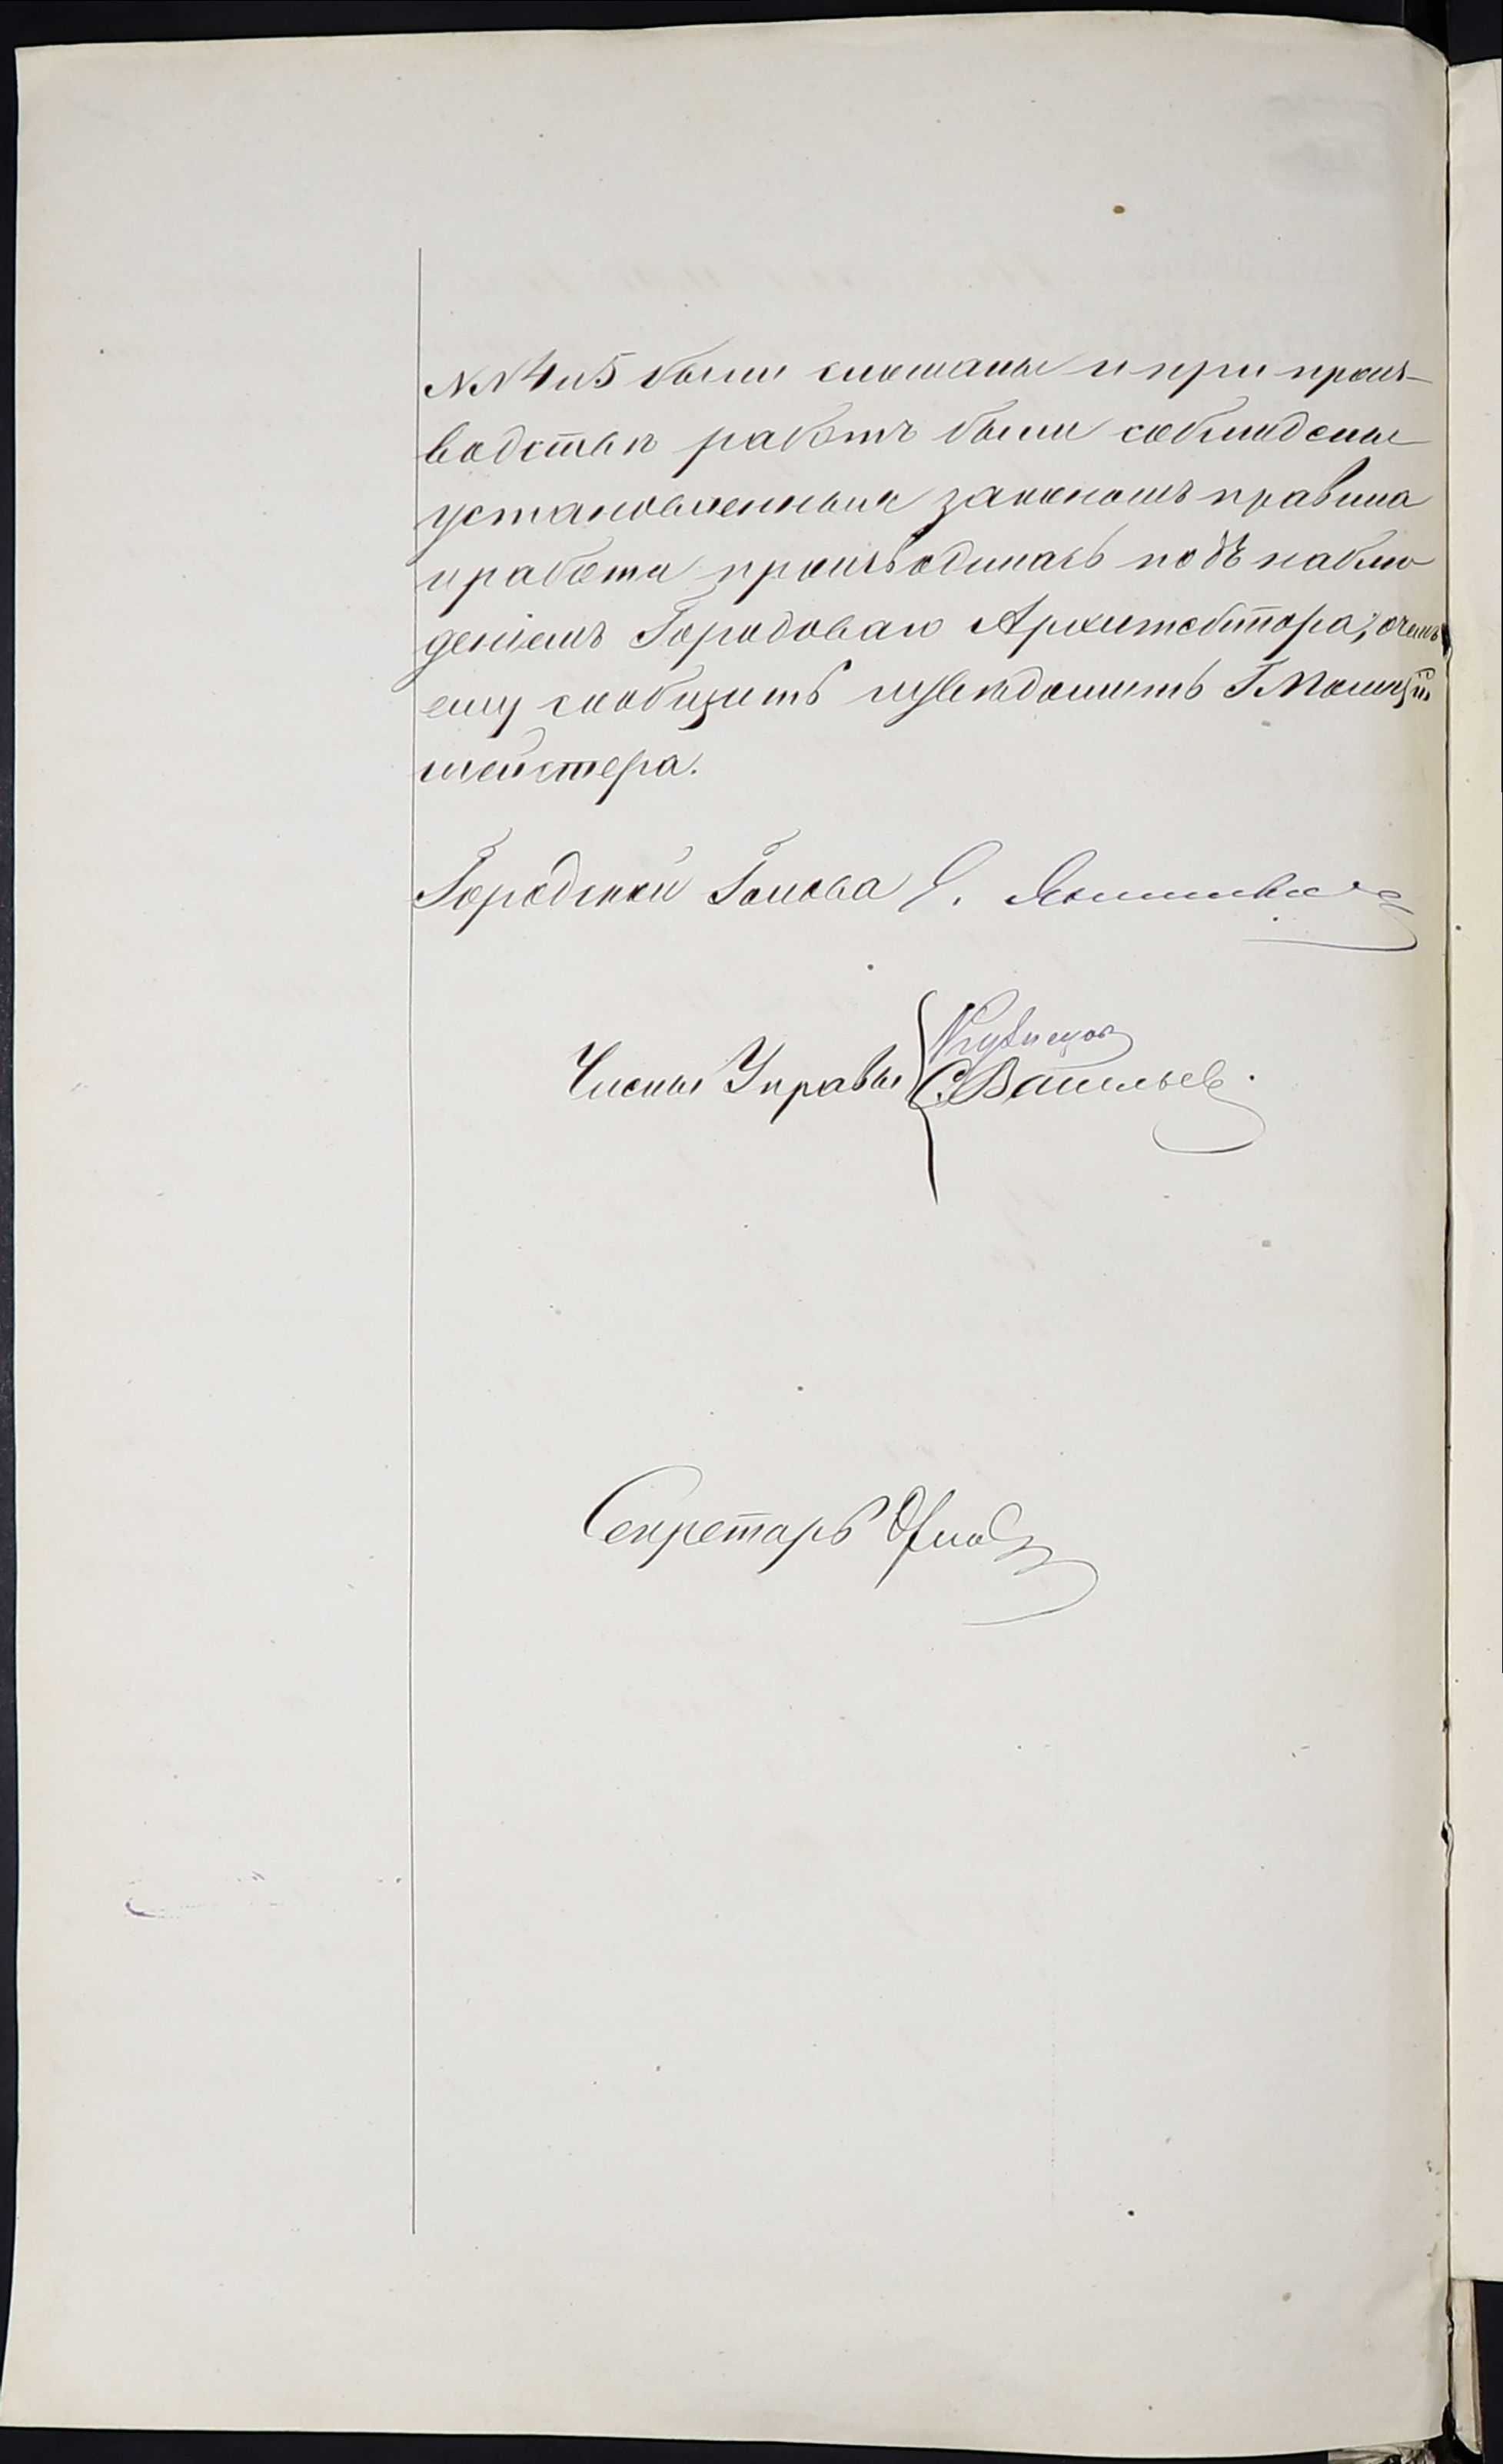 NN 4 и 5 были сломаны и при произ-
водствѣ работъ были соблюдены
установленныя закономъ правила
и работа производилась подъ наблю
деніемъ Городоваго Архитектора, о чемъ
ему сообщить и увѣдомить Г Полицій
мейстера.
Городской Голова
Члены Управы Кузнецов
С. Васильев.
Секретарь Орлов